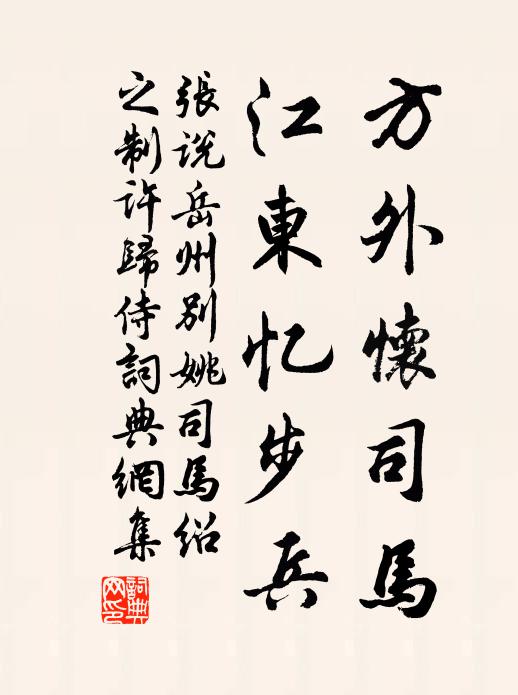 方外懷司馬
江東忆步兵
張説岳州别姚司馬绍
之制許歸侍詞典網集
詞典
网印